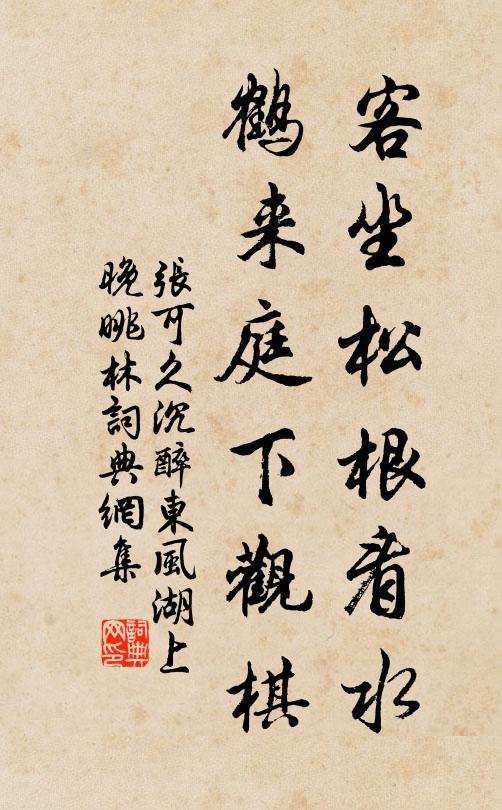 客坐松根看水
鶴来庭下觀棋
張可久沉醉東風湖上
晚眺林詞典網集
詞典网印